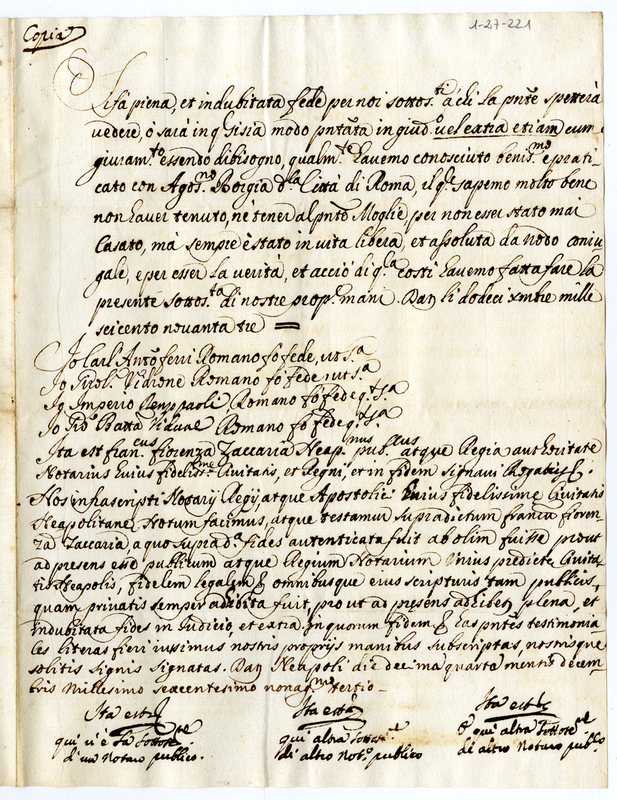 Copia
1-27-221
Si fà piena, et indubitata fede per noi sottos.ti à chi la pnte spetterà
vedere, ò sarà in qsisia modo pntata in giud.o vel extra etiam cum
giuram.to essendo di bisogno, qualm.te havemo conosciuto benis.mo e prati-
cato con Agos.no Borgia d.la Città di Roma, il q.le sapemo molto bene
non haver tenuto, nè tener al pnte Moglie, per non esser stato mai
Casato, mà sempre è stato in vita libera, et assoluta da nodo coniu-
gale, e per esser la verità, et acciò di q.la costi havemo fatta fare la
presente sottos.ta di nostre prop.e mani. Nap. li dodeci xmbre mille
seicento novanta tre =
Io Carl' Anto ferri Romano fò fede, ut s.a
Io Romano fò fede ut s.a
Io Imperio Romano fò fede q.to s.a
Io Gio Batta Romano fò fede q.to s.a
Ita est fran.cus fiorenza Zaccaria Neap.nus pub.cus atque Regia authoritate
Notarius huius fideliss.me Civitatis, et Regni, et in fidem signavi
Nos infrascripti Notarij Regij atque Apostolici huius fidelissime Civitatis
Neapolitane Notum facimus, atque testamur supradictum francu fioren-
za Zaccaria, a quo suprad.a fides autenticata fuit ab olim fuisse prout
ad presens esse publicum atque Regium Notarium huius predicte Civita-
tis Neapolis, fidelem legalem & omnibusque eius scripturis tam publicis,
quam privatis semper adhibita fuit, pro ut ad presens adhibet plena, et
indubitata fides in Iudicio, et extra. In quorum fidem & has pntes testimonia-
les literas fieri iussimus nostris proprijs manibus subscriptas, nostrisque
solitis signis signatas. Dat Neapoli die decima quarta mensis decem-
bris Millesimo sexcentesimo nonag.mo tertio.
Ita est
Ita est
Ita est
qui vi è la sottosc.ne
qui altra sottosc.ne
qui altra sottosc.ne
d'un Notaro publico.
di altro Not.o publico
di altro Notaro pub.co